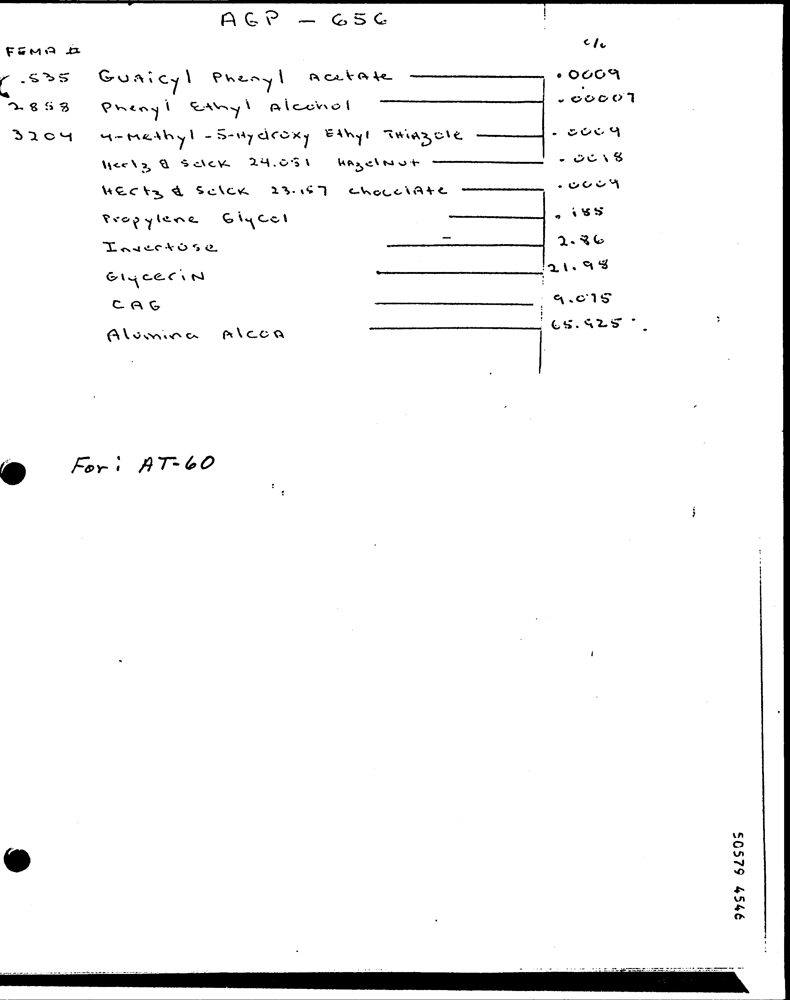 AGP - 656
FEMA # c/o
.535 Guaicyl Phenyl Acetate .0009
2858 Phenyl Ethyl Alcohol .00007
3204 4-Methyl-5-Hydroxy Ethyl Thiazole .0009
Hertz & Selck 24.051 Hazelnut .0018
Hertz & Selck 23.157 Choclate
Propylene Glycol .185
Invertose 2.86
Glycerin 21.98
CAG 9.075
Alumina Alcoa 65.925
For: AT-60
50579 4546